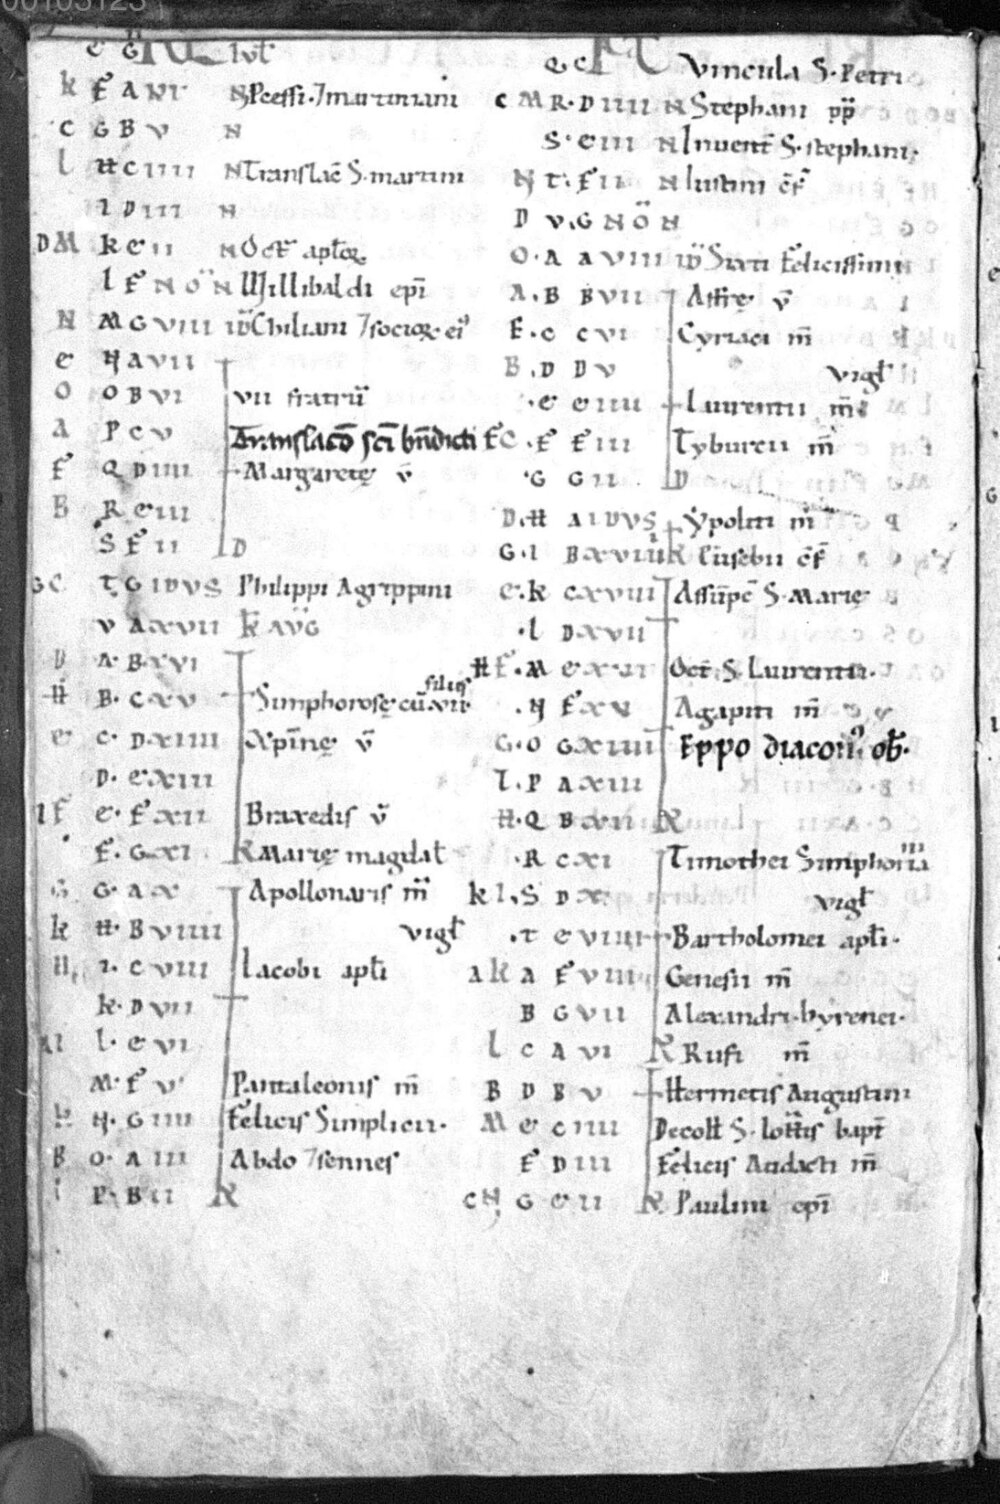 00105123
e G KL Iul̄
k F A VI N Pcessi·⁊martiniani
c G B V N
l H C IIII N Translac̄ S·martini
I D III N
D M k E II N Oct̄ apl̄oꝝ
l F N Ö N Willibaldi ep̄i
N M G VIII id̄ Chiliani ⁊socioꝝ ei⁹
e N A VII
O O B VI vii fratrū
a P C V Translacō sc̄i bn̄dicti
F Q D IIII Margaretę v̄
B R E III
S F II D
G C T G IDVS Philippi Agrippini
V A XVII k̄ AVG
D A· B XVI
H B· C XV Simphorosę cū·vii· filiis
e C· D XIIII Xp̄inę v̄
D· E XIII
I F E· F XII Braxedis v̄
F· G XI R Marię magdal̄
G G· A X Apollonaris m̄
k H· B VIIII vigl̄
H I· C VIII Iacobi apl̄i
k· D VII
l· E VI
M· F V Pantaleonis m̄
N· G IIII Felicis Simplicii·
B O· A III Abdo ⁊sennes
I P· B II R
Q C Vincula S·Petri
c M R· D IIII N Stephani pp̄
S· E III N Inuent̄ S·stephani·
N T· F II N Iustini c̄f
D V· G N Ö N
O· A A VIII id̄ Sixti Felicissimi
A· B B VII Affrę v̄
F· C C VI Cyriaci m̄
B· D D V vigl̄
·E E IIII Laurentii m̄
F C· F F III Tyburcii m̄
·G G II D
D· H A IDVS Ypoliti m̄
G· I B XVIIII K Eusebii c̄f
E· k C XVIII Assūpc̄ S·Marię
·l D XVII
H F· M E XVI Oct̄ S·Laurentii·
·N F XV Agapiti m̄
G· O G XIIII Eppo diacon⁹ ob̄·
I· P A XIII
H· Q B XII R
·R C XI Timothei Simphoria
k I· S D X vigl̄
·T E VIIII Bartholomei apl̄i·
a k A F VIII Genesii m̄
B G VII Alexandri·hyrenei·
l C A VI R Rufi m̄
B D B V Hermetis Augustini
M E C IIII Decoll̄ S·Ioh̄is bapt̄
F D III Felicis Audacti m̄
C N G E II R Paulini ep̄i